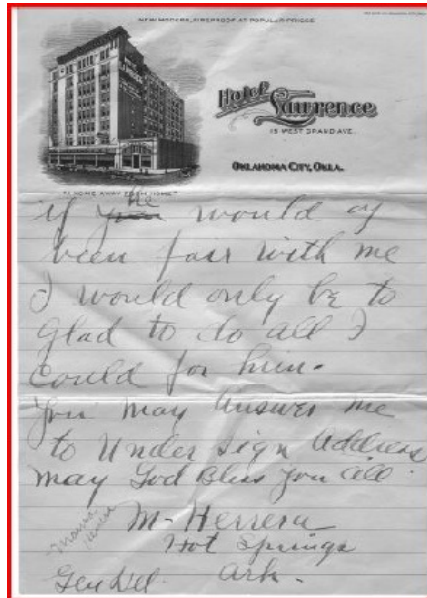 NEW MODERN, FIREPROOF AT POPULAR PRICES
Hotel
Lawrence
15 WEST GRAND AVE.
OKLAHOMA CITY, OKLA.
"A HOME AWAY FROM HOME"
he
if you would of
been fair with me
I would only be to
Glad to do all I
could for him.
You may answer me
to Under sign Address
may God Bless you all
M- Herrera
Hot Springs
Ark.
Gen Del